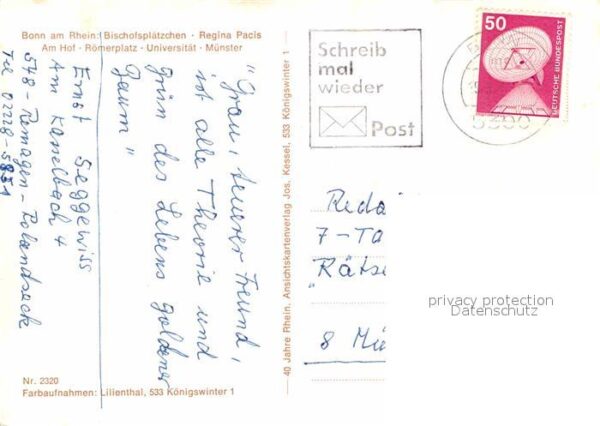 Bonn am Rhein: Bischofsplätzchen · Regina Pacis
Am Hof · Römerplatz · Universität · Münster
"Grau, teurer Freund,
ist alle Theorie und
grün des Lebens goldener
Baum"
Ernst Seggewiss
Am Kasselbach 4
548-Remagen-Rolandseck
Tel 02228-
Nr. 2320
Farbaufnahmen: Lilienthal, 533 Königswinter 1
40 Jahre Rhein. Ansichtskartenverlag Jos. Kessel, 533 Königswinter 1
Schreib
mal
wieder
Post
50
DEUTSCHE BUNDESPOST
5300
Reda
7-Ta
"Rätse
8 Mü
privacy protection
Datenschutz